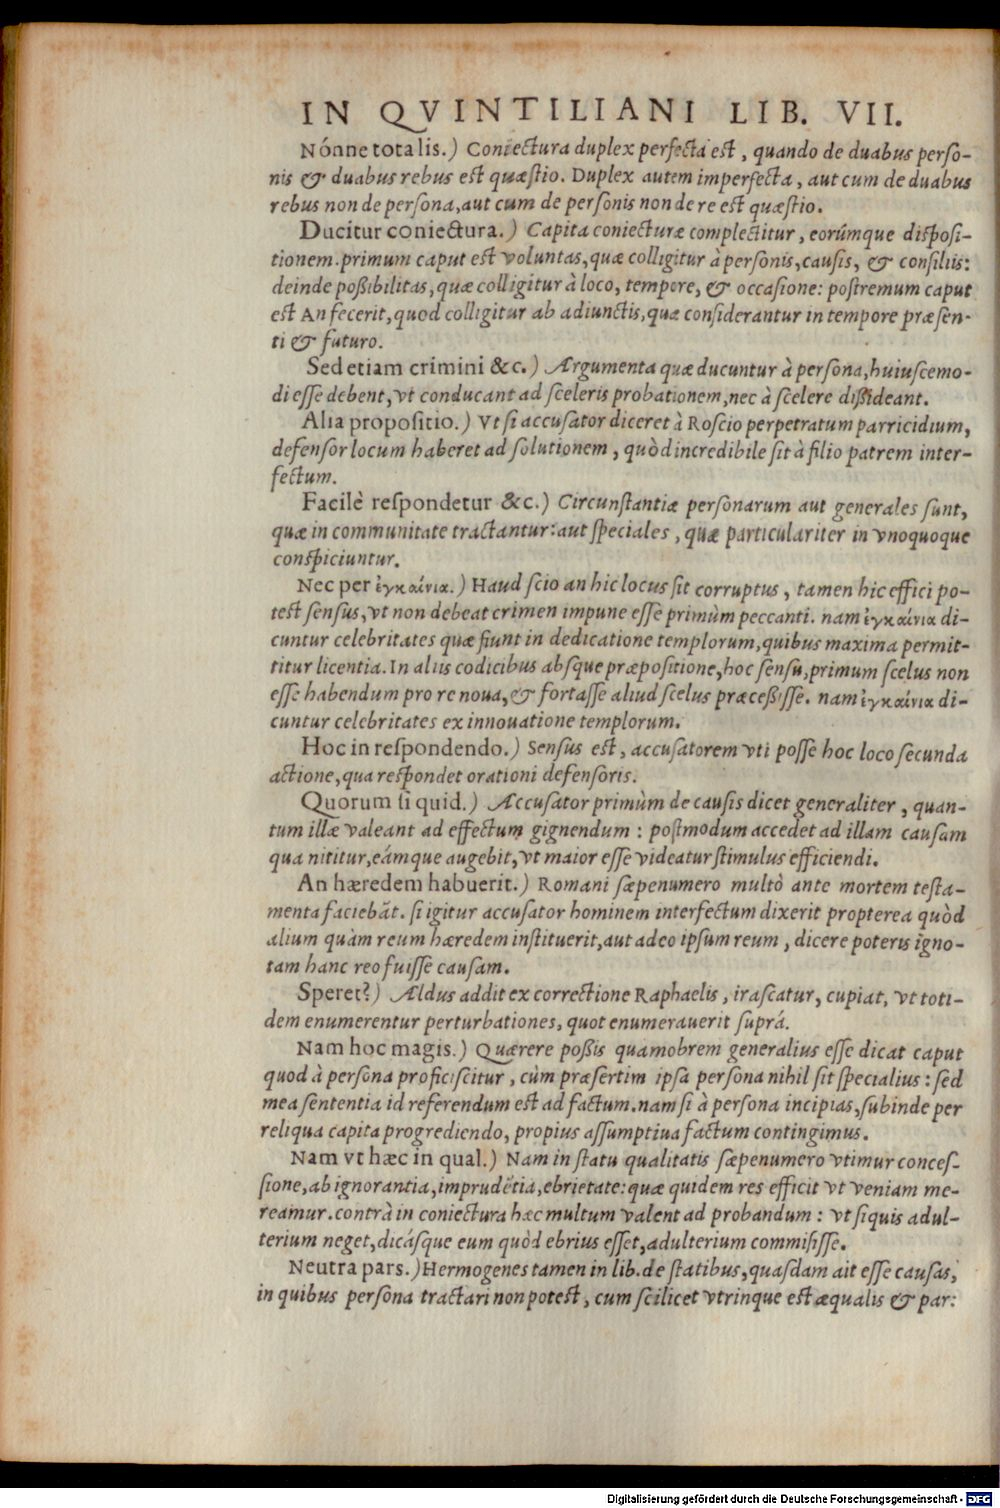 IN QVINTILIANI LIB. VII.
Nónne totalis.) Coniectura duplex perfecta est, quando de duabus perso-
nis & duabus rebus est quæstio. Duplex autem imperfecta, aut cum de duabus
rebus non de persona, aut cum de personis non de re est quæstio.
Ducitur coniectura.) Capita coniecturæ complectitur, eorúmque disposi-
tionem. primum caput est voluntas, quæ colligitur à personis, causis, & consiliis:
deinde poßibilitas, quæ colligitur à loco, tempore, & occasione: postremum caput
est An fecerit, quod colligitur ab adiunctis, quæ considerantur in tempore præsen-
ti & futuro.
Sed etiam crimini &c.) Argumenta quæ ducuntur à persona, huiuscemo-
di esse debent, vt conducant ad sceleris probationem, nec à scelere dißideant.
Alia propositio.) Vt si accusator diceret à Roscio perpetratum parricidium,
defensor locum haberet ad solutionem, quòd incredibile sit à filio patrem inter-
fectum.
Facilè respondetur &c.) Circunstantiæ personarum aut generales sunt,
quæ in communitate tractantur: aut speciales, quæ particulariter in vnoquoque
conspiciuntur.
Nec per ἐγκαίνια.) Haud scio an hic locus sit corruptus, tamen hic effici po-
test sensus, vt non debeat crimen impune esse primùm peccanti. nam ἐγκαίνια di-
cuntur celebritates quæ fiunt in dedicatione templorum, quibus maxima permit-
titur licentia. In aliis codicibus absque præpositione, hoc sensu, primum scelus non
esse habendum pro re noua, & fortasse aliud scelus præceßisse. nam ἐγκαίνια di-
cuntur celebritates ex innouatione templorum.
Hoc in respondendo.) Sensus est, accusatorem vti posse hoc loco secunda
actione, qua respondet orationi defensoris.
Quorum si quid.) Accusator primùm de causis dicet generaliter, quan-
tum illæ valeant ad effectum gignendum: postmodum accedet ad illam causam
qua nititur, eámque augebit, vt maior esse videatur stimulus efficiendi.
An hæredem habuerit.) Romani sæpenumero multò ante mortem testa-
menta faciebãt. si igitur accusator hominem interfectum dixerit propterea quòd
alium quàm reum hæredem instituerit, aut adeo ipsum reum, dicere poteris igno-
tam hanc reo fuisse causam.
Speret?) Aldus addit ex correctione Raphaelis, irascatur, cupiat, vt toti-
dem enumerentur perturbationes, quot enumerauerit suprá.
Nam hoc magis.) Quærere poßis quamobrem generalius esse dicat caput
quod à persona proficiscitur, cùm præsertim ipsa persona nihil sit specialius: sed
mea sententia id referendum est ad factum. nam si à persona incipias, subinde per
reliqua capita progrediendo, propius assumptiua factum contingimus.
Nam vt hæc in qual.) Nam in statu qualitatis sæpenumero vtimur conces-
sione, ab ignorantia, imprudẽtia, ebrietate: quæ quidem res efficit vt veniam me-
reamur. contrà in coniectura hæc multum valent ad probandum: vt si quis adul-
terium neget, dicásque eum quòd ebrius esset, adulterium commisisse.
Neutra pars.) Hermogenes tamen in lib. de statibus, quasdam ait esse causas,
in quibus persona tractari non potest, cum scilicet vtrinque est æqualis & par:
Digitalisierung gefördert durch die Deutsche Forschungsgemeinschaft - DFG